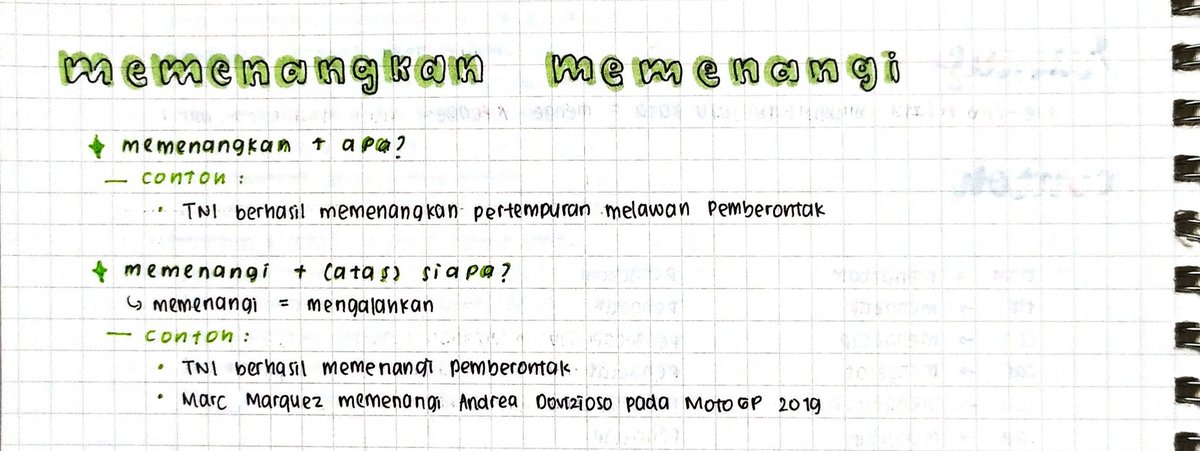 memenangkan memenangi
memenangkan + apa?
— contoh :
• TNI berhasil memenangkan pertempuran melawan pemberontak
memenangi + (atas) siapa?
↳ memenangi = mengalahkan
— contoh :
• TNI berhasil memenangi pemberontak
• Marc Marquez memenangi Andrea Dovizioso pada MotoGP 2019